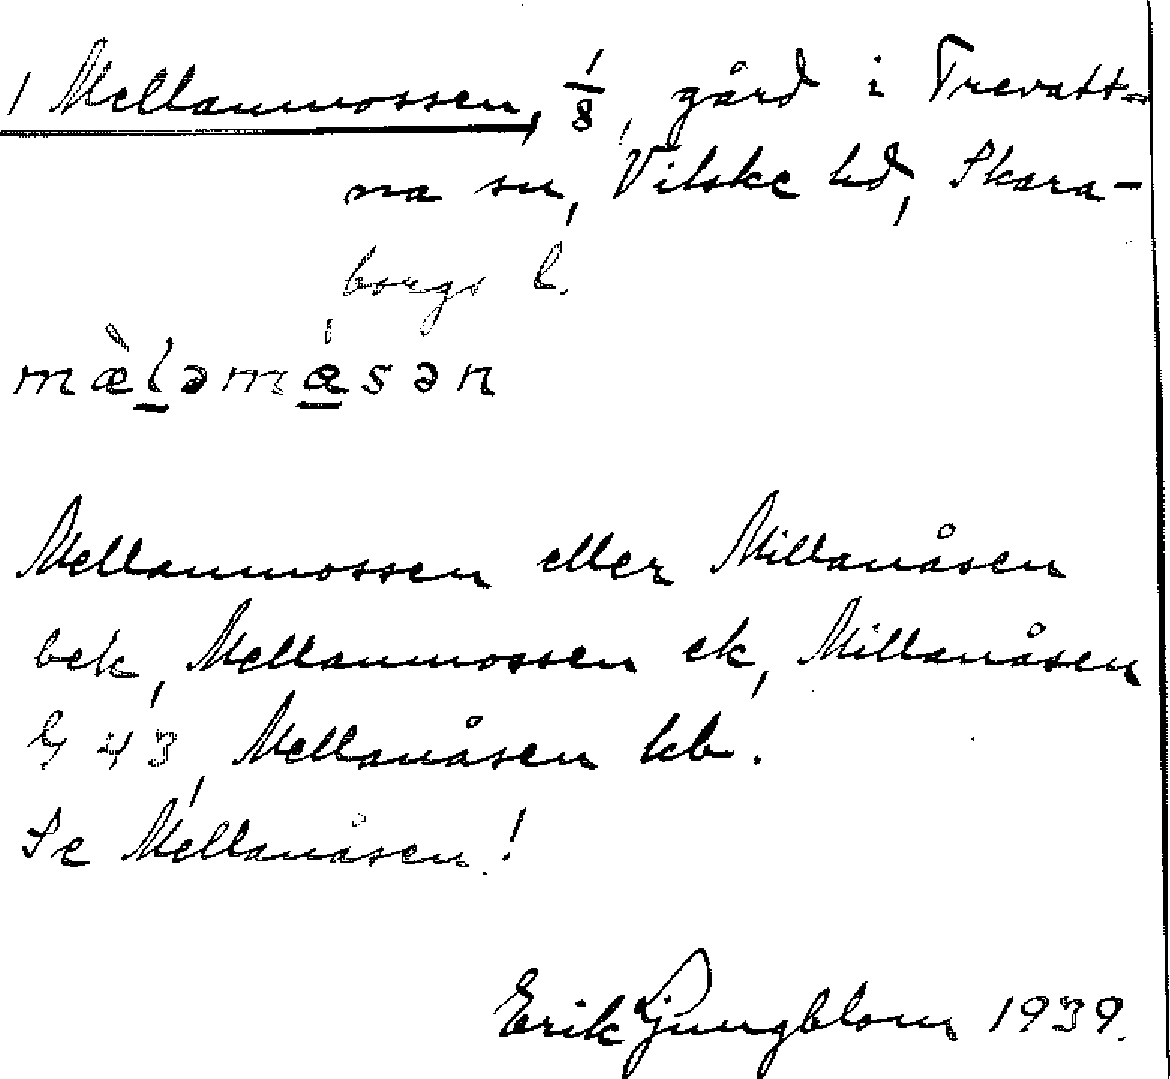 1 Mellanmossen, 1/8, gård i Trevatt-
na sn, Vilske hd, Skara-
borgs l.
mæ̀l̠əmǽ̠sən
Mellanmossen eller Millanåsen
bek, Mellanmossen ek, Millanåsen
43, Mellanåsen kb.
Se Mellanåsen!
Erik Ljungblom 1939.